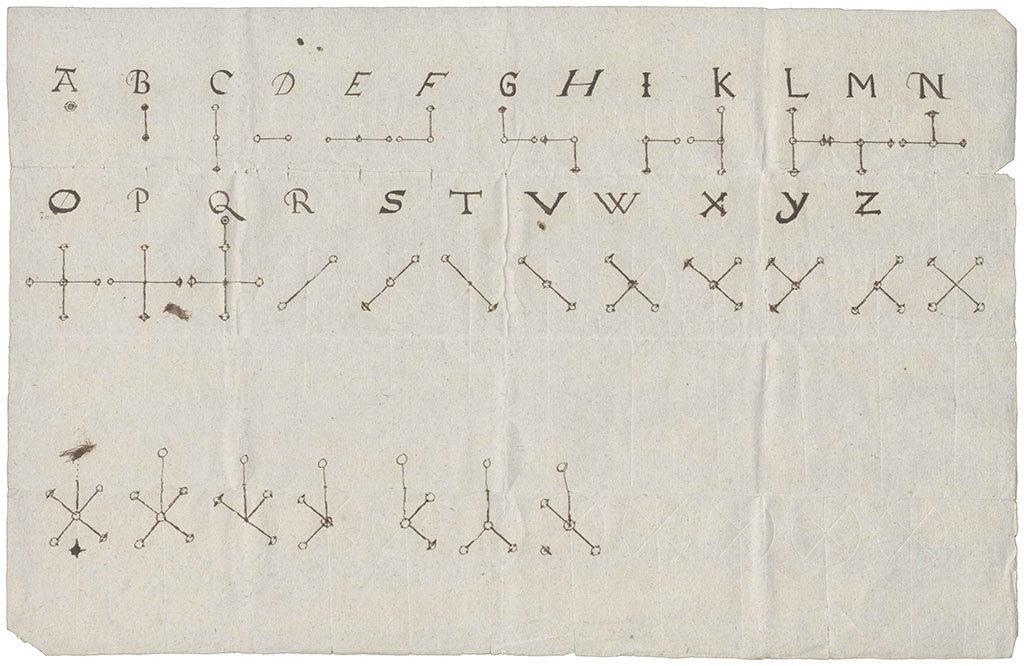 A B C D E F G H I K L M N
O P Q R S T V W X Y Z